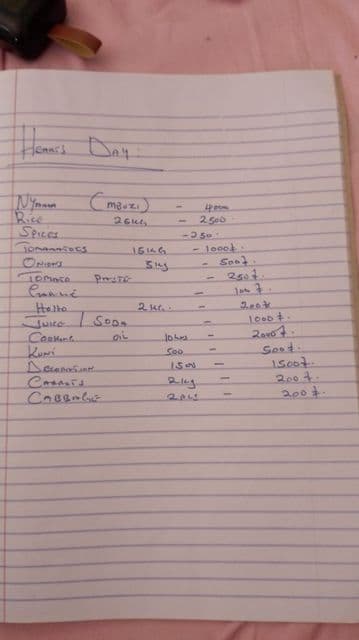 Day
Nyama (mbuzi) - 4000
Rice 25kg - 2500
Spices - 250
15kg - 1000/.
Onions 5kg - 500/.
Tomato paste - 250/.
- 100/.
Hoho 2kg - 200/.
Juice / Soda - 1000/.
Cooking oil 10ltrs - 2000/.
Kuni 500 - 500/.
Decoration 1500 - 1500/.
Carrots 2kg - 200/.
Cabbage 2pcs - 200/.